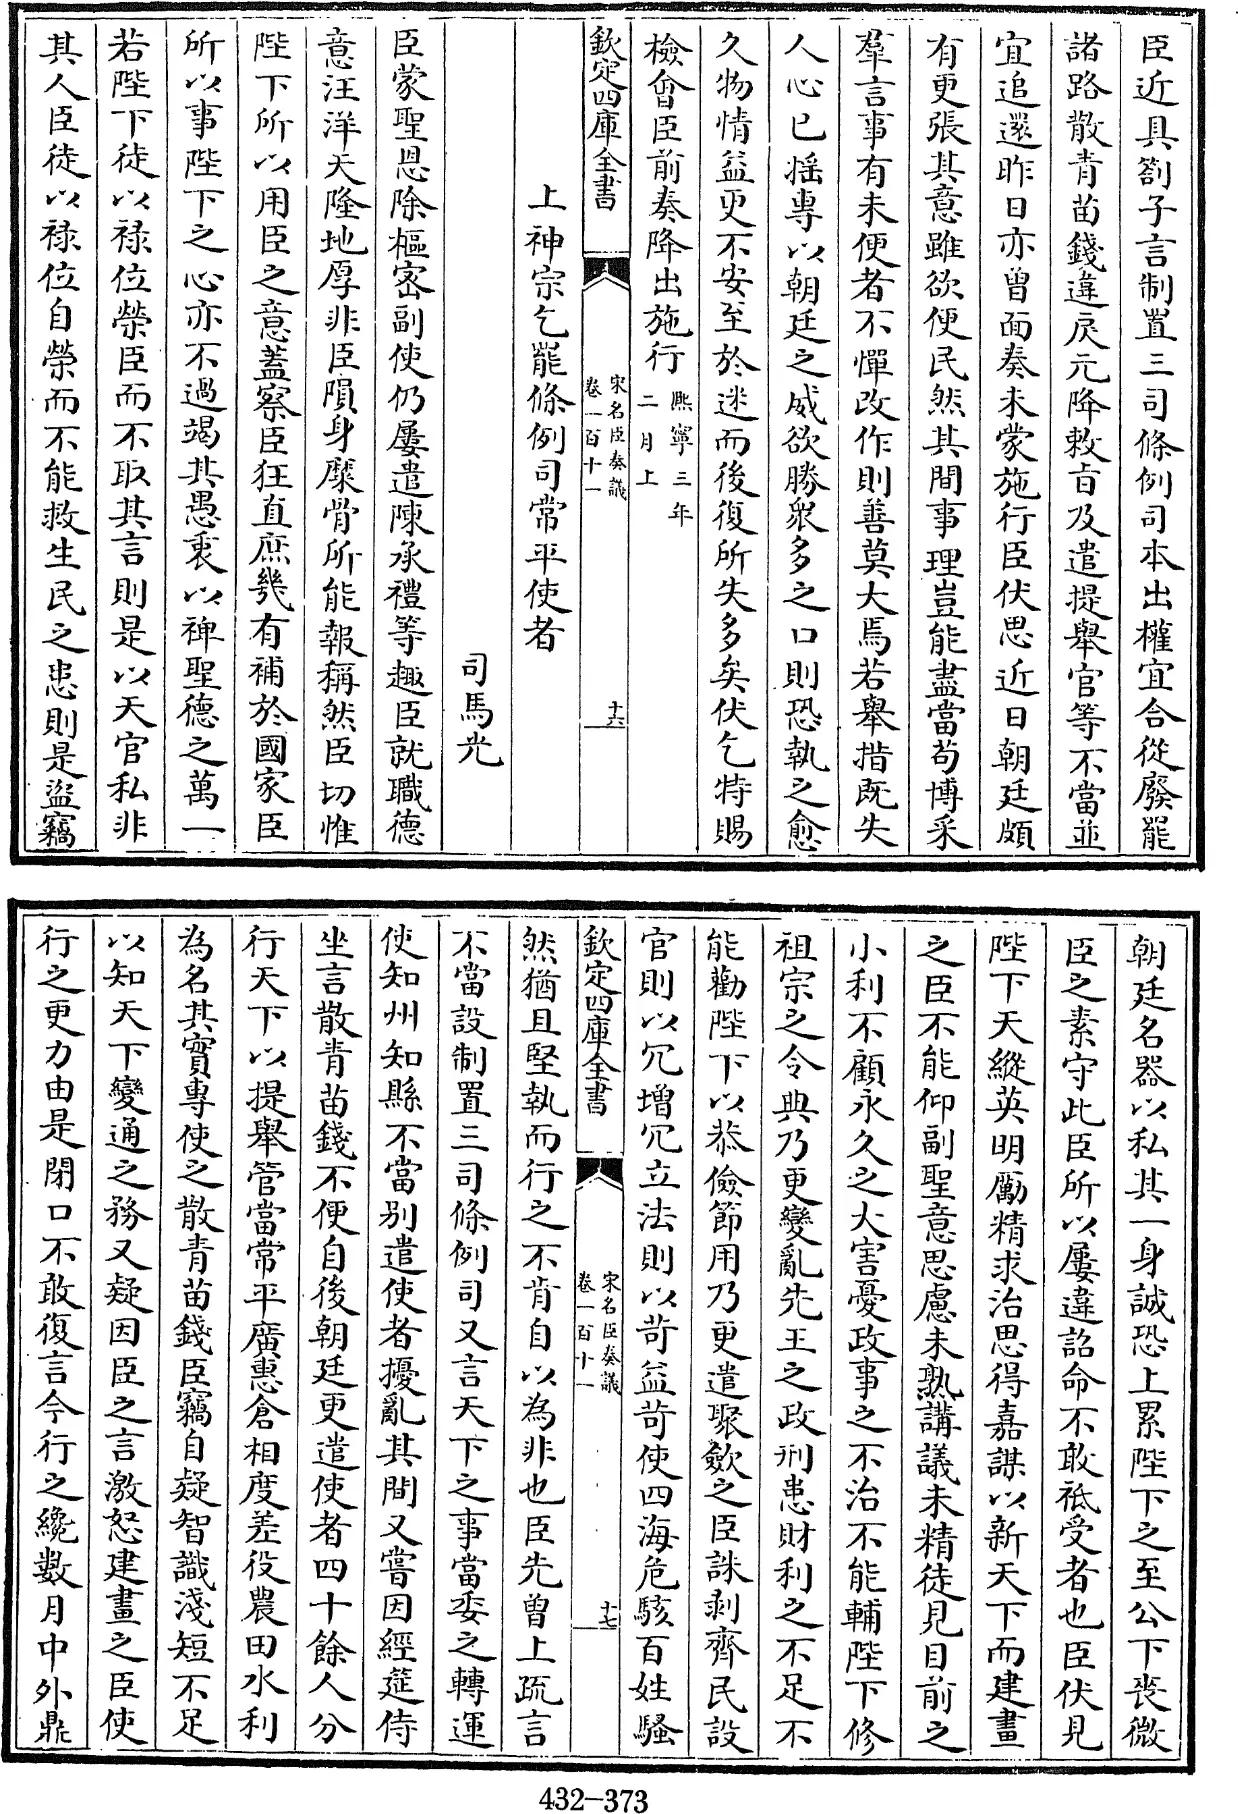 臣近具劄子言制置三司條例司本出權宜合從廢罷
諸路散青苗錢違戾元降敕㫖及遣提舉官等不當並
宜追還昨日亦曾面奏未蒙施行臣伏思近日朝廷頗
有更張其意雖欲便民然其間事理豈能盡當茍博采
羣言事有未便者不憚改作則善莫大焉若舉措既失
人心已揺專以朝廷之威欲勝衆多之口則恐執之愈
久物情益更不安至於迷而後復所失多矣伏乞特賜
檢㑹臣前奏降出施行熈寧三年二月上
欽定四庫全書
宋名臣奏議
卷一百十一
十六
上神宗乞罷條例司常平使者
司馬光
臣蒙聖恩除樞密副使仍屢遣陳承禮等趣臣就職德
意汪洋天隆地厚非臣隕身糜骨所能報稱然臣切惟
陛下所以用臣之意蓋察臣狂直庶幾有補於國家臣
所以事陛下之心亦不過竭其愚衷以裨聖德之萬一
若陛下徒以禄位榮臣而不取其言則是以天官私非
其人臣徒以禄位自榮而不能救生民之患則是盜竊
朝廷名器以私其一身誠恐上累陛下之至公下喪微
臣之素守此臣所以屢違詔命不敢祗受者也臣伏見
陛下天縱英明勵精求治思得嘉謀以新天下而建畫
之臣不能仰副聖意思慮未熟講議未精徒見目前之
小利不顧永久之大害憂政事之不治不能輔陛下修
祖宗之令典乃更變亂先王之政刑患財利之不足不
能勸陛下以恭儉節用乃更遣聚斂之臣誅剥齊民設
官則以冗增冗立法則以苛益苛使四海危駭百姓騷
欽定四庫全書
宋名臣奏議
卷一百十一
十七
然猶且堅執而行之不肯自以為非也臣先曾上疏言
不當設制置三司條例司又言天下之事當委之轉運
使知州知縣不當别遣使者擾亂其間又嘗因經筵侍
坐言散青苗錢不便自後朝廷更遣使者四十餘人分
行天下以提舉管當常平廣惠倉相度差役農田水利
為名其實專使之散青苗錢臣竊自疑智識淺短不足
以知天下變通之務又疑因臣之言激怒建畫之臣使
行之更力由是閉口不敢復言今行之纔數月中外鼎
432-373